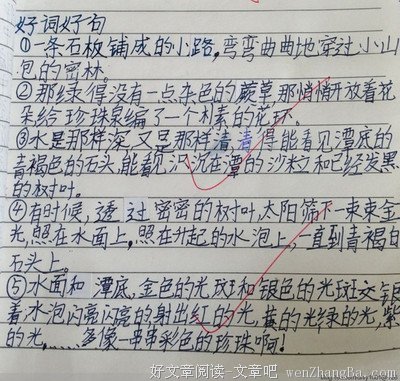 好词好句
①一条石板铺成的小路,弯弯曲曲地穿过小山
包的密林。
②那绿得没有一点杂色的蕨草,那悄悄开放着花
朵给珍珠泉编了一个朴素的花环。
③水是那样深,又是那样清,清得能看见潭底的
青褐色的石头,能看见沉在潭的沙粒和已经发黑
的树叶。
④有时候,透过密密的树叶,太阳筛下一束束金
光,照在水面上,照在升起的水泡上,一直到青褐白
石头上。
⑤水面和潭底,金色的光斑和银色的光斑交错
着;水泡闪亮闪亮的射出红的光,黄的光绿的光,紫
的光,……多像一串串彩色的珍珠啊!
好文章阅读-文章吧 wenZhangBa.com